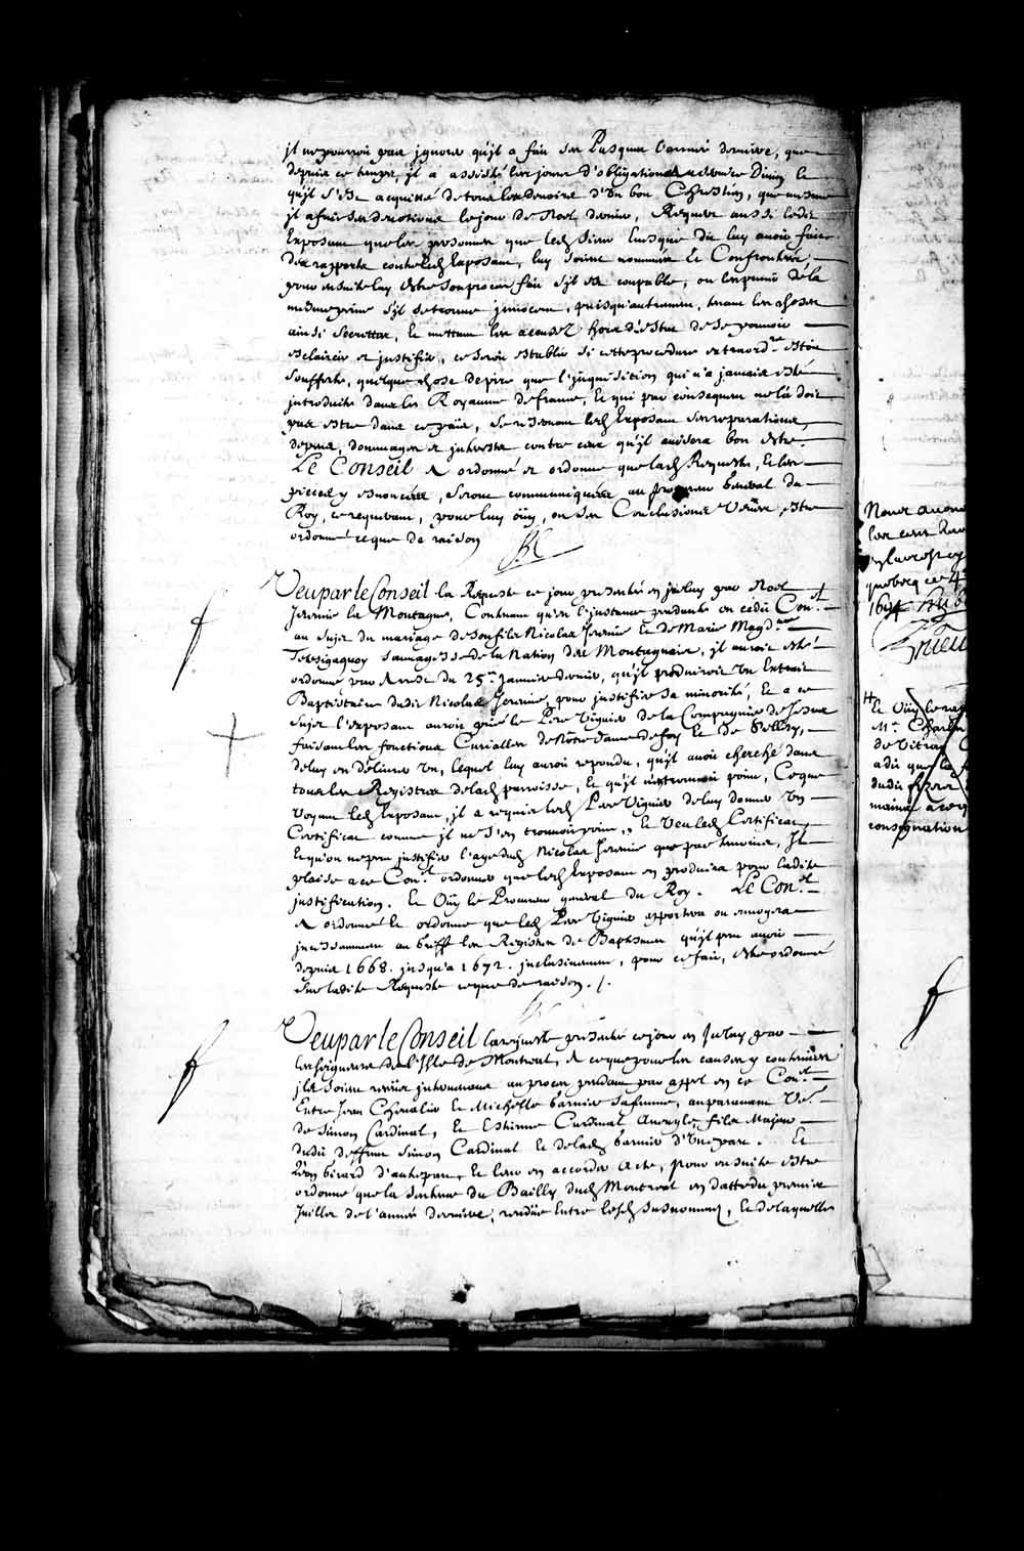 jl ne pouvoit pas jgnorer qu'jl a fait ses Pasques l'année derniere, que
depuis ce temps, jl a assisté les jours d'obligation au service Divin et
qu'jl s'est acquitté de tous les devoirs d'un bon Chrestien, que mesme
jl a fait ses devotions le jour de Noel dernier, Requiert aussi ledit
Exposant que les personnes que led. Sieur Evesque dit luy avoir fait
des rapports contre led. Exposant, luy soient nommées et Confrontées,
pour ensuite luy estre son procez fait s'jl est coupable, ou les puni de la
mesme peine s'jl se trouve jnnocent, puisqu'autrement, tenant les choses
ainsi secrettes, et mettant les accusez hors d'estre de se pouvoir
esclaircir et justifier, ce seroit establir si cette procedure extraord.re estoit
soufferte, quelque chose de pire que l'jnquisition qui n'a jamais esté
jntroduite dans le Royaume de france, et qui par consequent ne la doit
pas estre dans ce païs, se reservant led. Exposant ses reparations,
depens, dommages et jnterests contre ceux qu'jl avisera bon estre.
Le Conseil A ordonné et ordonne que lad. Requeste, et les
pieces y enoncées, seront communiquées au procureur General du
Roy, ce requerant, pour luy ouy, ou ses Conclusions Veües, estre
ordonné ce que de raison
Veu par le Conseil la Requeste ce jour presentée en jceluy par Noel
Jeremie la Montagne, Contenant qu'en l'jnstance pendante en cedit Con.el
au sujet du mariage de son fils Nicolas Jeremie et de Marie Magd.ne
Tetesigaguoy sauvagesse de la Nation des Montagnais, jl auroit esté
ordonné par Arrest du 25.e Janvier dernier, qu'jl produiroit un Extrait
Baptistaire dudit Nicolas Jeremie, pour justifier sa minorité, Et a ce
sujet l'exposant auroit prié le Pere Vignier de la Compagnie de Jesus
faisant les fonctions Curialles de Nôtre Dame de foy et de Sillery,
de luy en delivrer un, lequel luy auroit repondu, qu'jl avoit cherché dans
tous les Registres de lad. parroisse, et qu'jl n'en trouvoit point, Ce que
voyant led. Exposant, jl a requis led. Pere Vignier de luy donner un
Certificat comme jl ne s'en trouvoit point, Et Veu led. Certificat,
Et qu'on ne peu justifier l'age dud. Nicolas Jeremie que par temoins, Jl
plaise a ce Con.el ordonner que led. Exposant en produira pour ladite
justification. Et Oüy le Procureur general du Roy. Le Con.el
A ordonné et ordonne que led. Pere Vignier apportera ou envoyera
jncessamment au Greffe les Registres de Baptesmes qu'jl peut avoir
depuis 1668. jusqu'a 1672. jnclusivement, pour ce fait, estre ordonné
sur ladite Requeste ce que de raison. /.
Veu par le Conseil la requeste presentée ce jour en Jceluy par
les seigneurs de l'Isle de Montreal, A ce que pour les causes y contenües
jls soient receus jntervenans au procez pendant par appel en ce Con.el
Entre Jean Chevalier et Michelle Garnier sa femme, auparavant Ve.
de Simon Cardinal, Et Estienne Cardinal Aveugle, fils Majeur
dudit deffunt Simon Cardinal et de lad. Garnier d'une part. Et
Leon Girard d'autre part, Et leur en accorder Acte, pour en suite estre
ordonné que la sentence du Bailly dud. Montreal en datte du premier
Juillet de l'année derniere, rendüe Entre lesd. susnommez, Et de laquelle
Nous avons
quebecq ce 4
1694
Et Oüy le rap
M.r Charles
de Vitray
a dit que la
dudit
mains
consignation